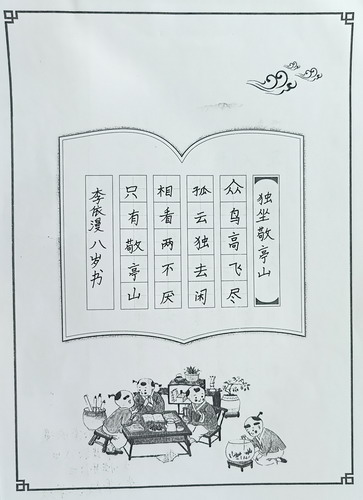 独坐敬亭山
众鸟高飞尽
孤云独去闲
相看两不厌
只有敬亭山
李依漫八岁书